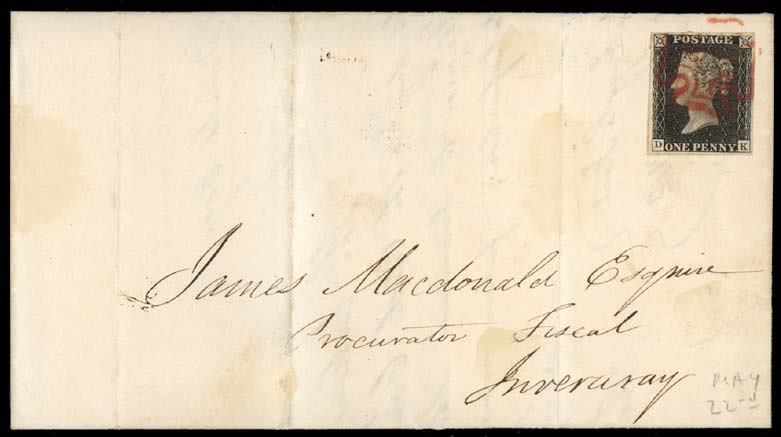 POSTAGE
D ONE PENNY K
James Macdonald Esquire
Procurator Fiscal
Inveraray
MAY
22nd